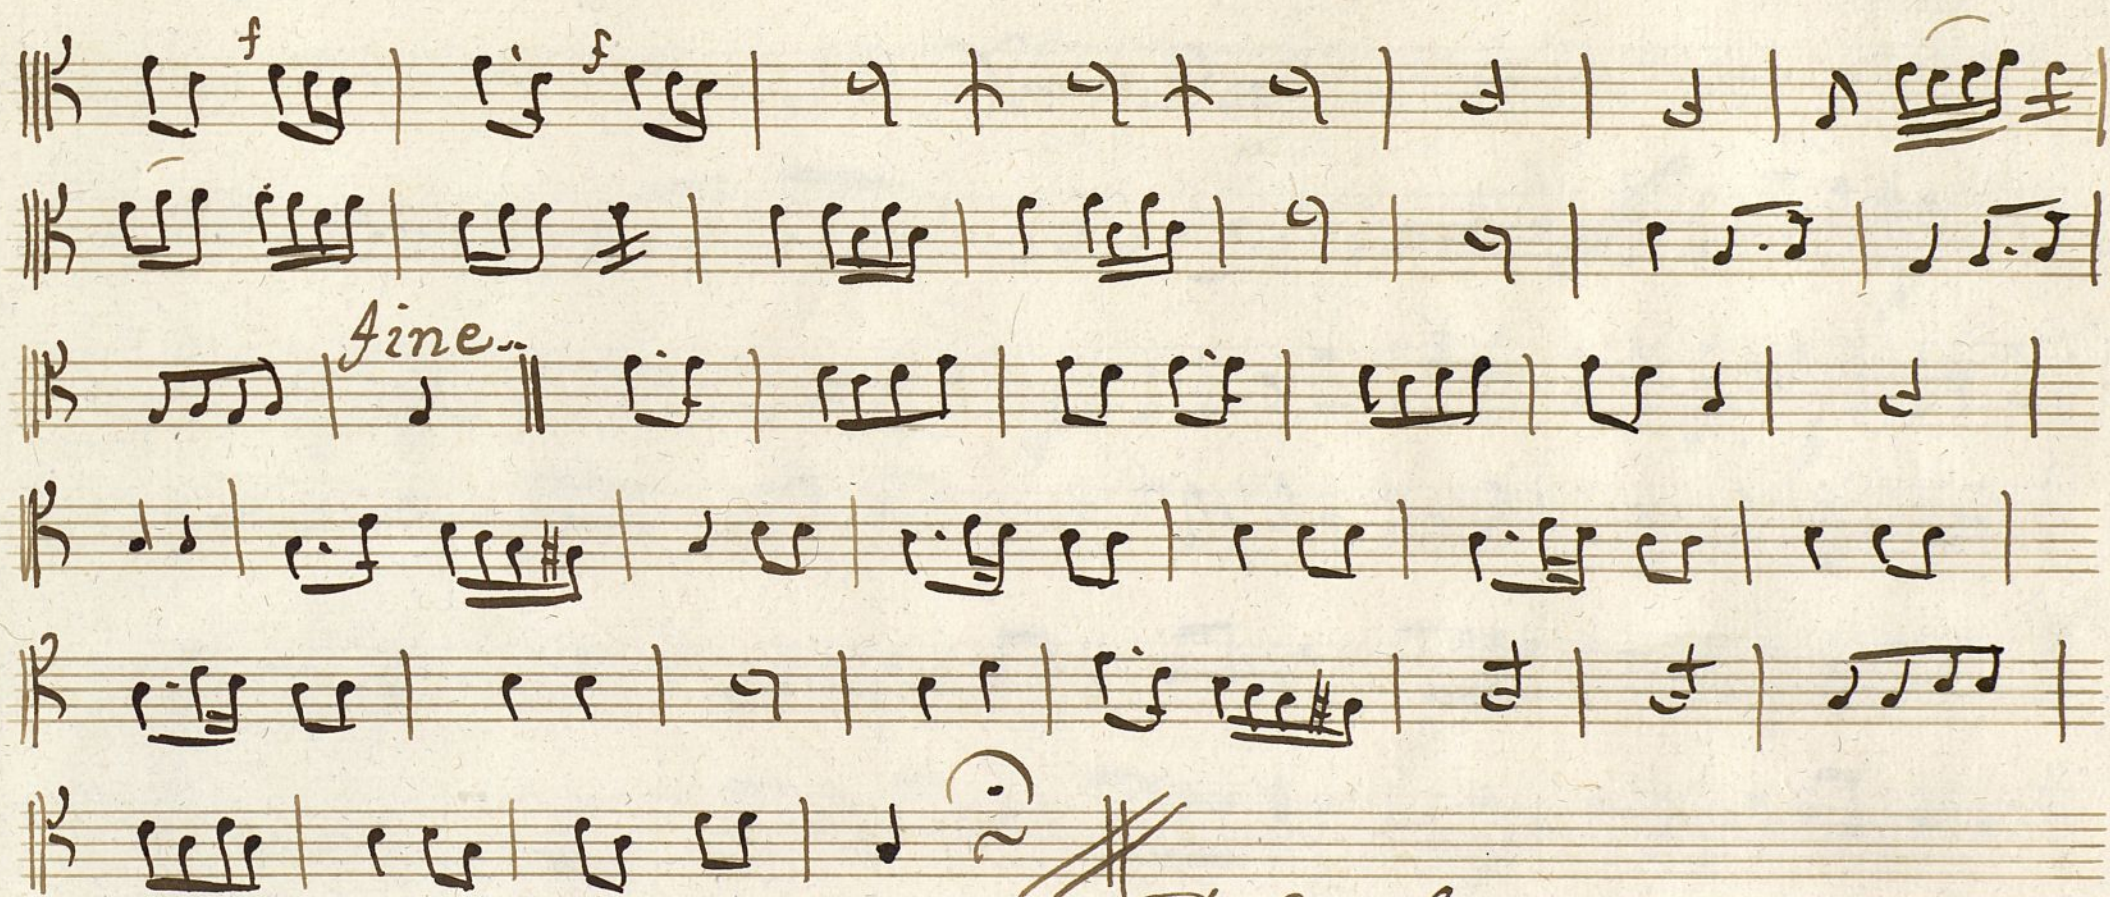 f f
fine